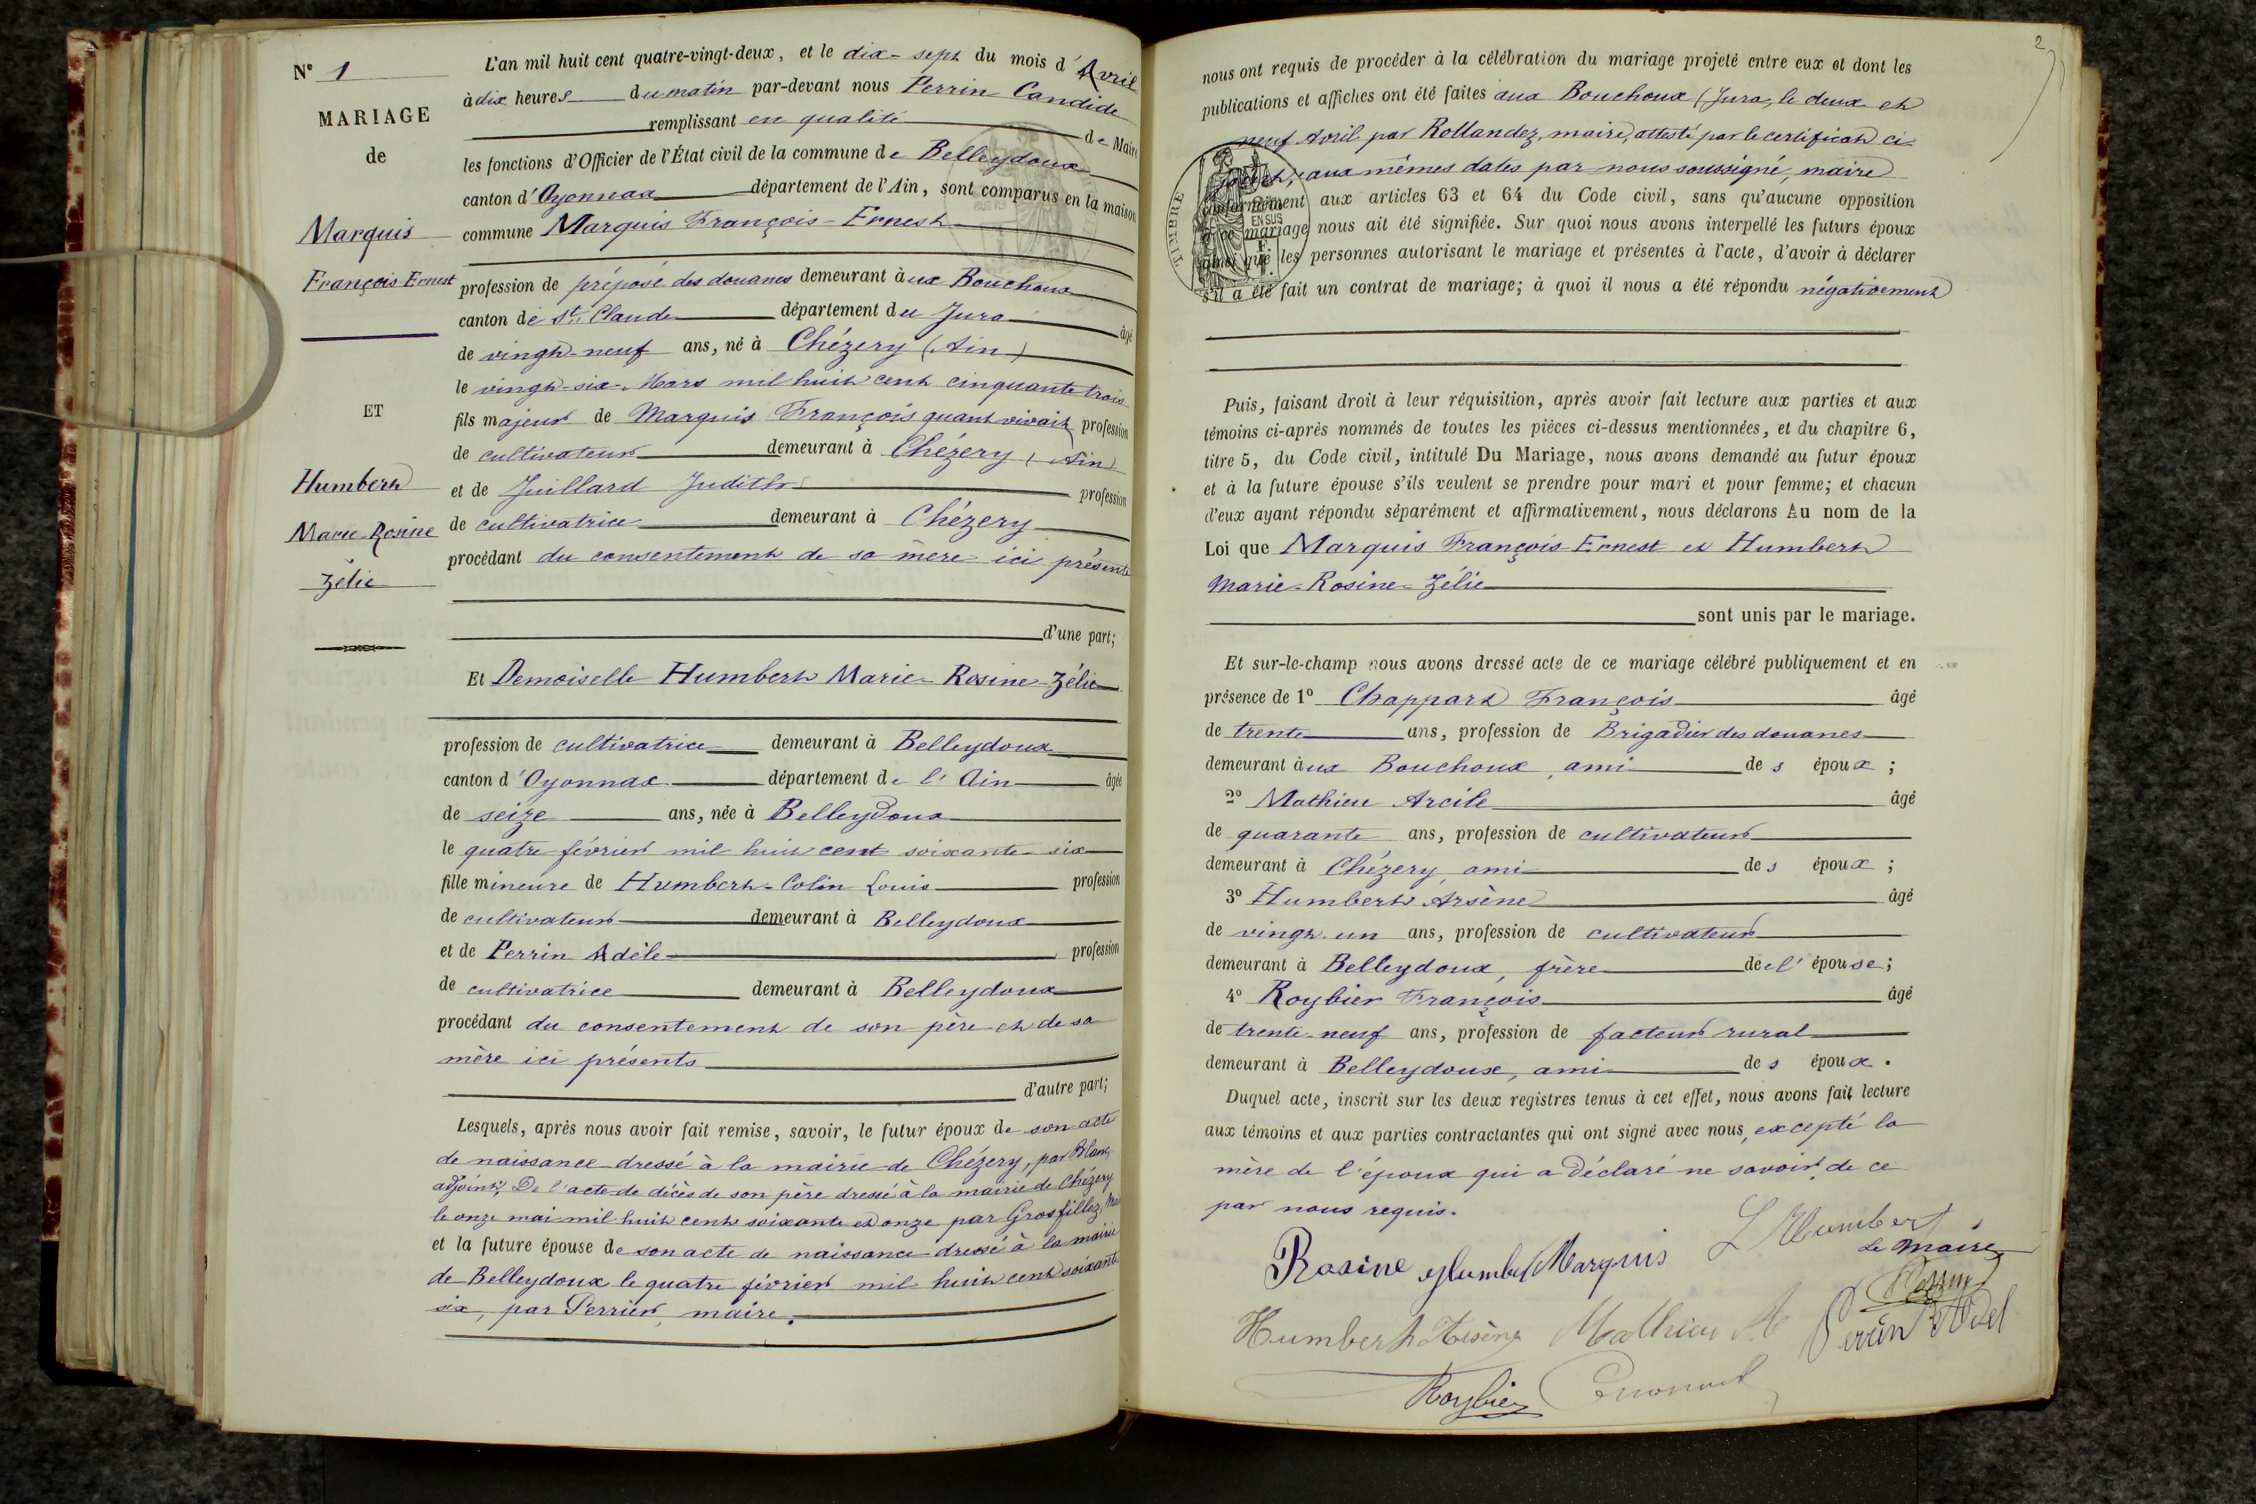 N° 1
MARIAGE
de
Marquis
François-Ernest
ET
Humbert
Marie-Rosine
Zélie
L'an mil huit cent quatre-vingt-deux, et le dix-sept du mois d'Avril
à dix heures du matin par-devant nous Perrin Candide
remplissant en qualité de Maire
les fonctions d'Officier de l'État civil de la commune de Belleydoux
canton d'Oyonnax département de l'Ain, sont comparus en la maison
commune Marquis François-Ernest
profession de préposé des douanes demeurant aux Bouchoux
canton de St Claude département du Jura âgé
de vingt-neuf ans, né à Chézery (Ain)
le vingt-six Mars mil huit cent cinquante trois
fils majeur de Marquis François quant vivait profession
de cultivateur demeurant à Chézery (Ain)
et de Juillard Judith profession
de cultivatrice demeurant à Chézery
procédant du consentement de sa mère ici présente
d'une part;
Et Demoiselle Humbert Marie-Rosine-Zélie
profession de cultivatrice demeurant à Belleydoux
canton d'Oyonnax département de l'Ain âgée
de seize ans, née à Belleydoux
le quatre février mil huit cent soixante-six
fille mineure de Humbert-Colin Louis profession
de cultivateur demeurant à Belleydoux
et de Perrin Adèle profession
de cultivatrice demeurant à Belleydoux
procédant du consentement de son père et de sa
mère ici présents
d'autre part;
Lesquels, après nous avoir fait remise, savoir, le futur époux de son acte
de naissance dressé à la mairie de Chézery, par Blanc,
adjoint; De l'acte de décès de son père dressé à la mairie de Chézery
le onze mai mil huit cent soixante et onze par Grosfillez,
et la future épouse de son acte de naissance dressé à la mairie
de Belleydoux le quatre février mil huit cent soixante
six, par Perrier, maire.
2
nous ont requis de procéder à la célébration du mariage projeté entre eux et dont les
publications et affiches ont été faites aux Bouchoux (Jura, le deux et
neuf Avril par Rollandez, maire, attesté par le certificat ci-
joint, aux mêmes dates par nous soussigné, maire
conformément aux articles 63 et 64 du Code civil, sans qu'aucune opposition
à ce mariage nous ait été signifiée. Sur quoi nous avons interpellé les futurs époux
ainsi que les personnes autorisant le mariage et présentes à l'acte, d'avoir à déclarer
s'il a été fait un contrat de mariage; à quoi il nous a été répondu négativement
TIMBRE
EN SUS
Puis, faisant droit à leur réquisition, après avoir fait lecture aux parties et aux
témoins ci-après nommés de toutes les pièces ci-dessus mentionnées, et du chapitre 6,
titre 5, du Code civil, intitulé Du Mariage, nous avons demandé au futur époux
et à la future épouse s'ils veulent se prendre pour mari et pour femme; et chacun
d'eux ayant répondu séparément et affirmativement, nous déclarons Au nom de la
Loi que Marquis François-Ernest et Humbert
Marie-Rosine-Zélie
sont unis par le mariage.
Et sur-le-champ nous avons dressé acte de ce mariage célébré publiquement et en
présence de 1° Chappard François âgé
de trente ans, profession de Brigadier des douanes
demeurant aux Bouchoux, ami des époux;
2° Mathieu Arcile âgé
de quarante ans, profession de cultivateur
demeurant à Chézery, ami des époux;
3° Humbert Arsène âgé
de vingt-un ans, profession de cultivateur
demeurant à Belleydoux, frère de l'épouse;
4° Roybier François âgé
de trente-neuf ans, profession de facteur rural
demeurant à Belleydoux, ami des époux.
Duquel acte, inscrit sur les deux registres tenus à cet effet, nous avons fait lecture
aux témoins et aux parties contractantes qui ont signé avec nous, excepté la
mère de l'époux qui a déclaré ne savoir, de ce
par nous requis.
Rosine Humbert Marquis L Humbert
Le Maire
Perrin
Humbert Arsène Mathieu A Perrin Adel
Roybier